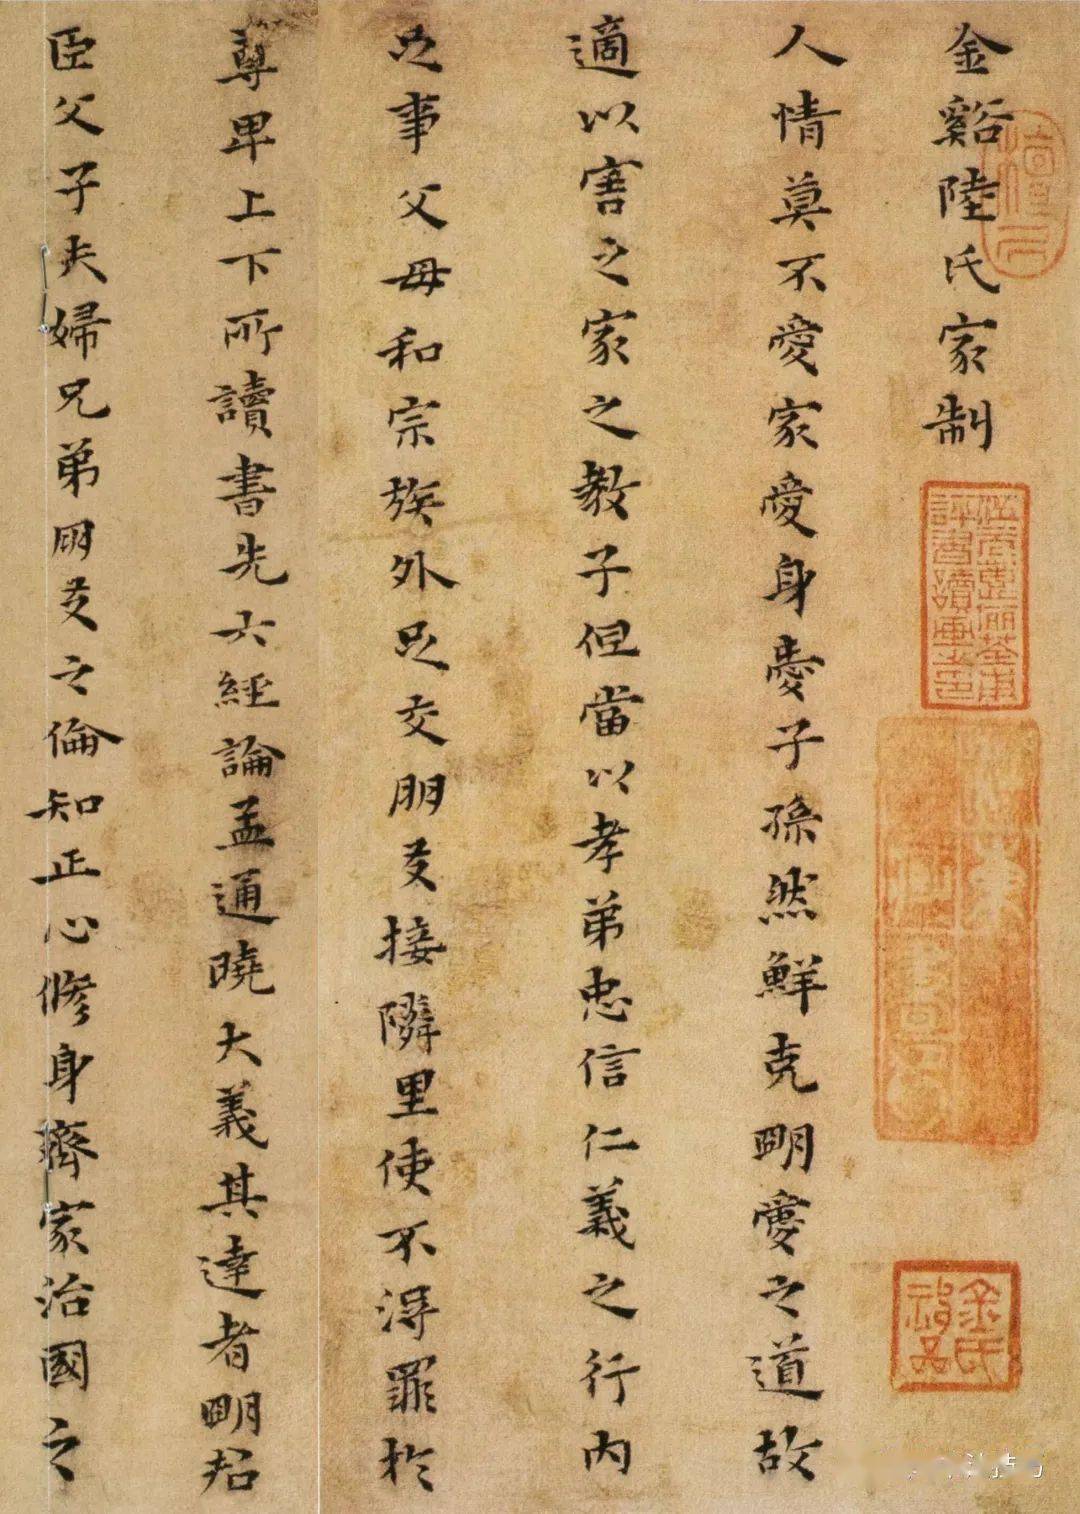 金谿陸氏家制
人情莫不愛家愛身愛子孫然鮮克明愛之道故
適以害之家之教子但當以孝弟忠信仁義之行内
足事父母和宗族外足交朋友接隣里使不得罪於
尊卑上下所讀書先六經論孟通曉大義其達者明君
臣父子夫婦兄弟朋友之倫知正心脩身齊家治國之